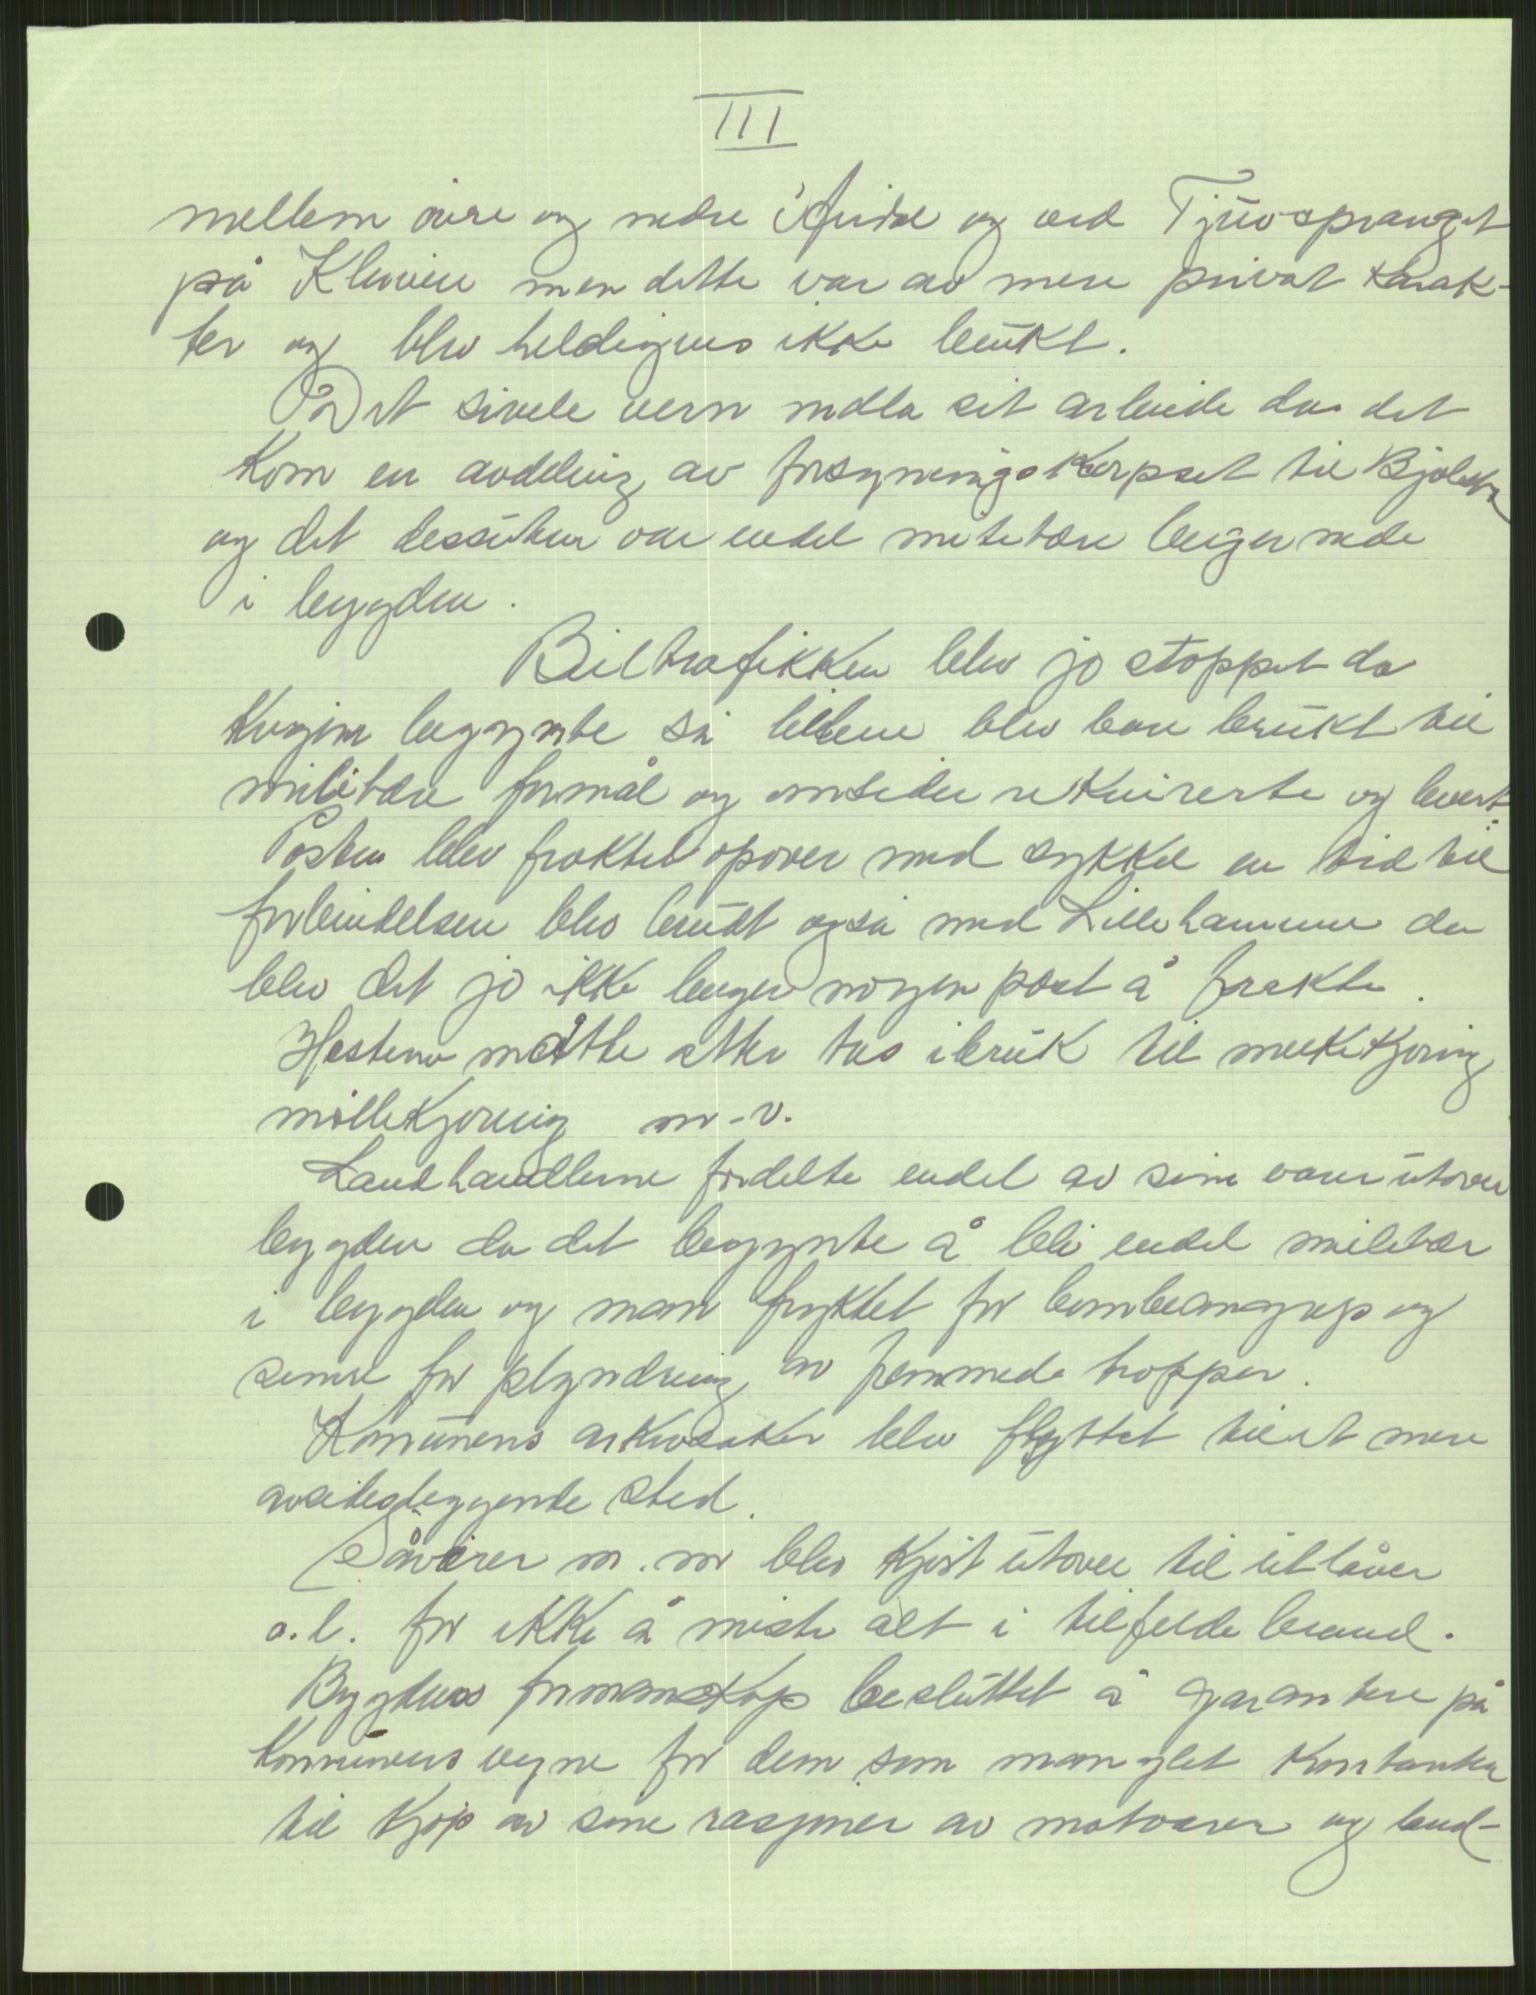 III
mellem øvre og nedre og ved Tjuvspranget
på Kleivein men dette var av mere privat karak-
ter og blev heldigvis ikke brukt.
Det sivile vern nedla sit arbeide da det
kom en avdeling av forsyningskorpset til Bjølstad
og det dessuten var endel militære beger nede
i bygden.
Biltrafikken blev jo stoppet da
Krigen begynte så bilene blev bare brukt til
militære formål og omsider rekvirerte og levert.
Posten blev fraktet opover med sykkel en tid til
forbindelsen blev brudt også med Lillehammer da
blev det jo ikke lenger nogen post å frakte.
Hestene måtte atter tas ibruk til melkekjøring
møllekjøring m.v.
Landhandlerne fordelte endel av sine varer utover
bygden da det begynte å bli endel militær
i bygden og man fryktet for bombeangrep og
senere for plyndring av fremmede tropper.
Komunens arkivsaker blev flyttet til et mere
avsidesliggende sted.
Såvarer m.m blev kjørt utover til utlåver
o.l. for ikke å miste alt i tilfelde brand.
Bygdens formanskap besluttet å garantere på
kommunens vegne for dem som manglet kontanter
til kjøp av sine rasjoner av matvarer og land-